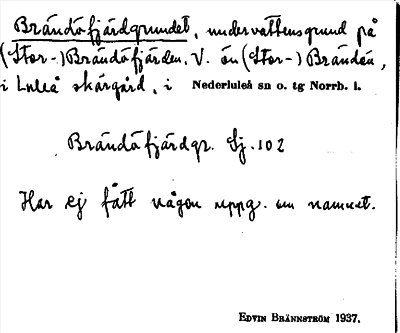 Brändöfjärdgrundet, undervattensgrund på
(Stor-)Brändöfjärden, V. ön (Stor-) Brändön,
i Luleå skärgård, i Nederluleå sn o. tg Norrb. l.
Brändöfjärdgr. Sj. 102
Har ej fått någon uppg. om namnet.
EDVIN BRÄNNSTRÖM 1937.